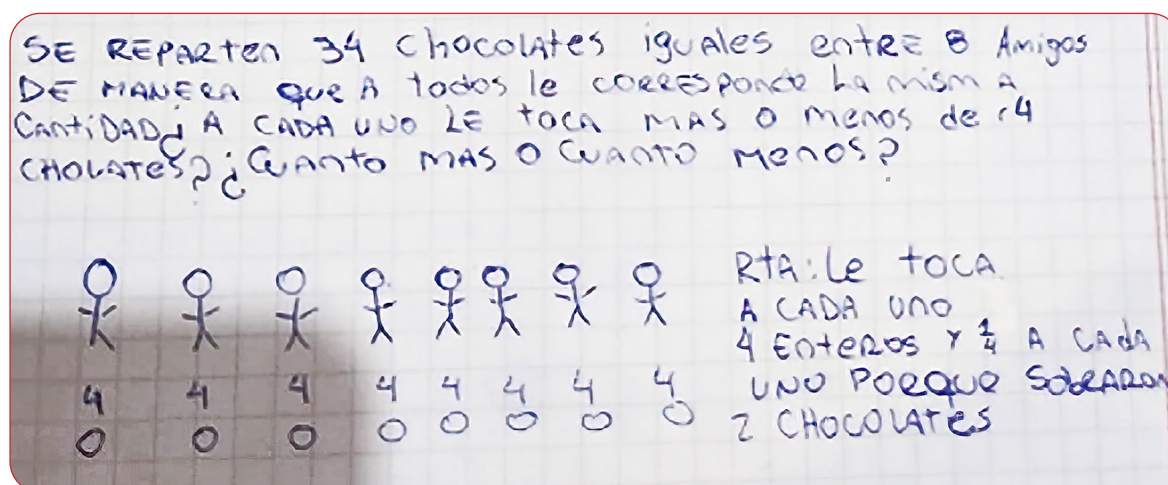 SE REPARten 34 ChocolAtes iguAles entRE 8 Amigos
DE MANERA Que A todos le coRRESponde LA mism A
CantiDAD¿ A CADA UNO LE tocA mAS O menos de 4
CHOLATES? ¿CuAnto mAS O CuAnto Menos?
RtA: Le tocA
A CADA uno
4 EnteROS Y 1/4 A CAdA
UNO PORQUE SobRARON
2 CHOCOLAtes
4 4 4 4 4 4 4 4